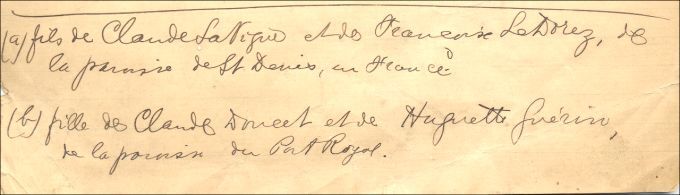 (a) fils de Claude LaVigne et de Francoise LeDorez, de
la paroisse de St Denis, en France
(b) fille de Claude Doucet et de Huguette Guérin,
de la paroisse du Port Royal.